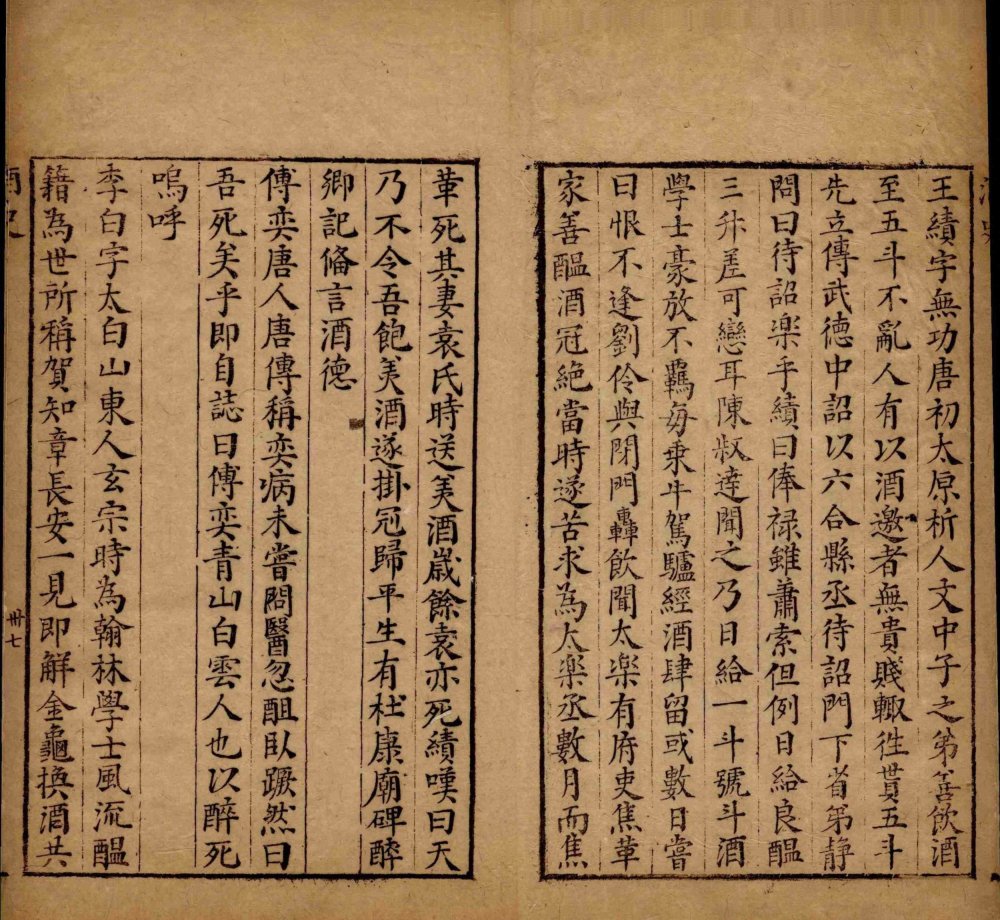 王績字無功唐初太原析人文中子之弟善飲酒
至五斗不亂人有以酒邀者無貴賤輙徃貫五斗
先立傳武德中詔以六合縣丞待詔門下省弟静
問曰待詔楽乎績曰俸禄雖蕭索但例日給良醞
三升差可戀耳陳叔逹聞之乃日給一斗號斗酒
學士豪放不羈每乗牛駕驢經酒肆留或數日嘗
曰恨不逢劉伶與閉門轟飲聞太楽有府吏焦革
家善醞酒冠絶當時遂苦求為太楽丞數月而焦
革死其妻袁氏時送美酒歳餘袁亦死績嘆曰天
乃不令吾飽美酒遂掛冠歸平生有杜康廟碑醉
卿記偹言酒德
傅奕唐人唐傳稱奕病未嘗問醫忽酣臥蹶然曰
吾死矣乎即自誌曰傅奕青山白雲人也以醉死
嗚呼
李白字太白山東人玄宗時為翰林學士風流醞
籍為世所稱賀知章長安一見即解金龜換酒共
酒史
卅七